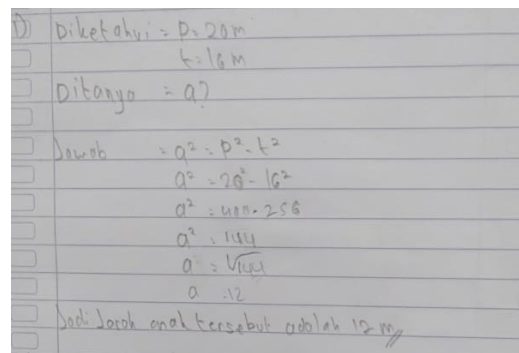 1) Diketahui = p = 20 m
t = 16 m
Ditanya = a?
Jawab = a² = p² - t²
a² = 20² - 16²
a² = 400 - 256
a² = 144
a = √144
a = 12
Jadi Jarak anak tersebut adalah 12 m //